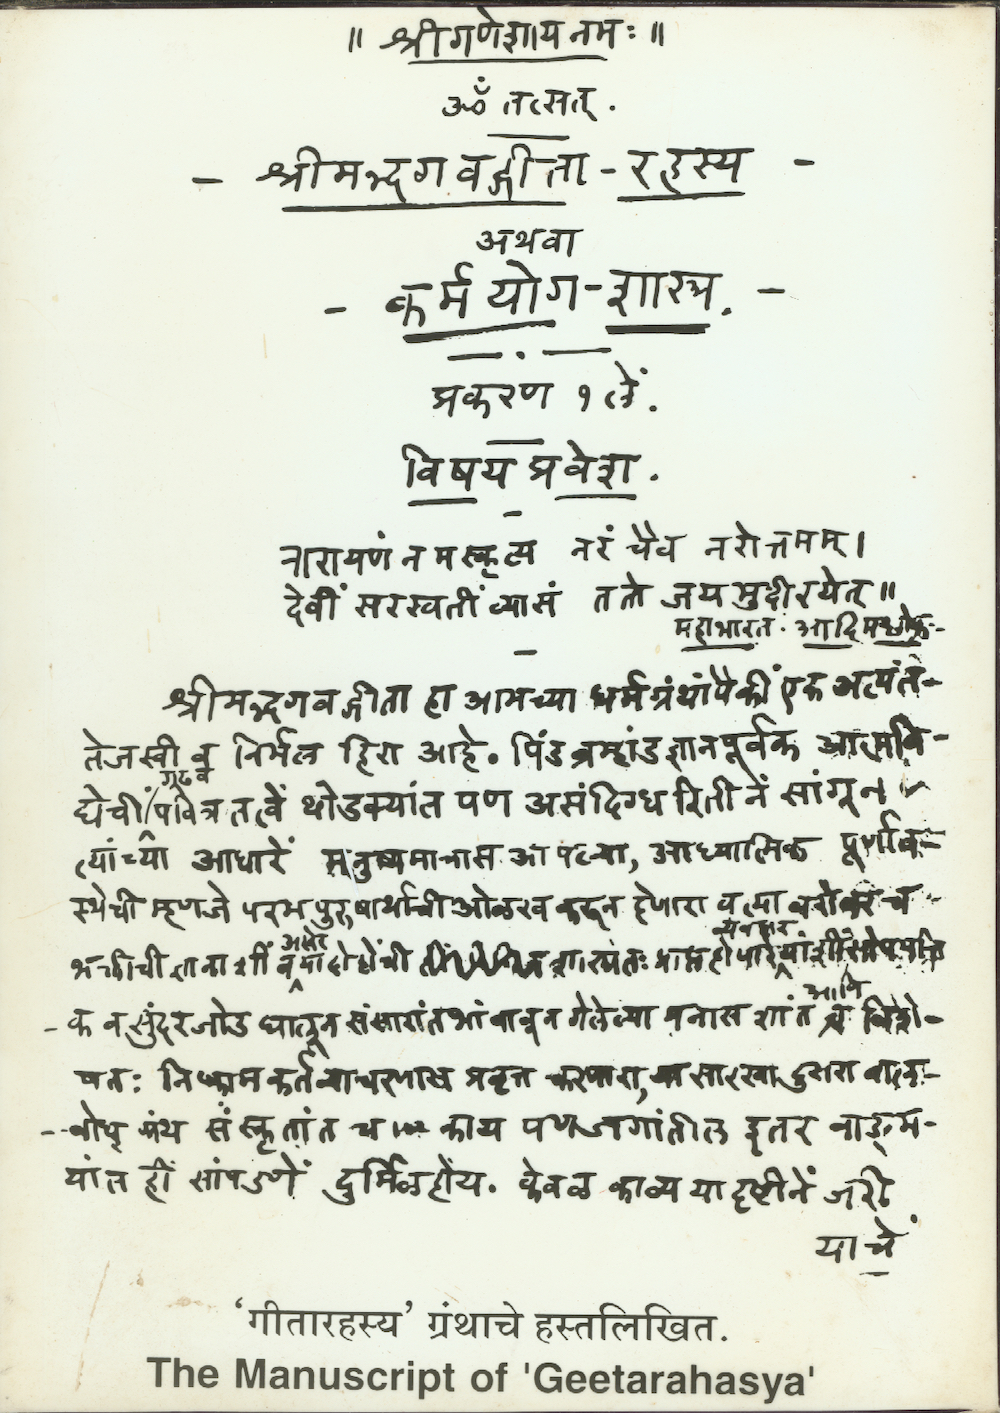 ॥ श्रीगणेशाय नमः ॥
ॐ तत्सत्.
- श्रीमद्भगवद्गीता - रहस्य -
अथवा
- कर्मयोग - शास्त्र. -
प्रकरण १ लें.
विषय प्रवेश.
नारायणं नमस्कृत्य नरं चैव नरोत्तमम्।
देवीं सरस्वतीं व्यासं ततो जयमुदीरयेत्॥
महाभारत. आदिम श्लोक.
श्रीमद्भगवद्गीता हा आमच्या धर्मग्रंथांपैकीं एक अत्यंत-
तेजस्वी व निर्मल हिरा आहे. पिंडब्रम्हांडज्ञानपूर्वक आत्मवि-
गूढ व
द्येचीं पवित्र तत्वें थोडक्यांत पण असंदिग्ध रितीनें सांगून
त्यांच्या आधारें मनुष्यमात्रास आपल्या, आध्यात्मिक पूर्णाव-
स्थेची म्हणजे परमपुरुषार्थाची ओळख करून देणारा व त्याबरोबरच
व्यवहार
भक्तीची ज्ञानाशीं
आणि
क व सुंदर जोड घालून संसारांत भांबावून गेलेल्या मनास शांत व विशे-
षतः निष्काम कर्तव्याचरणास प्रवृत्त करणारा, यासारखा दुसरा बाल-
बोध ग्रंथ संस्कृतांत च काय पण जगांतील इतर वाङ्म-
यांत हीं सांपडणें दुर्मिळ होय. केवळ काव्य या दृष्टीनें जरी
याचें
'गीतारहस्य' ग्रंथाचे हस्तलिखित.
The Manuscript of 'Geetarahasya'